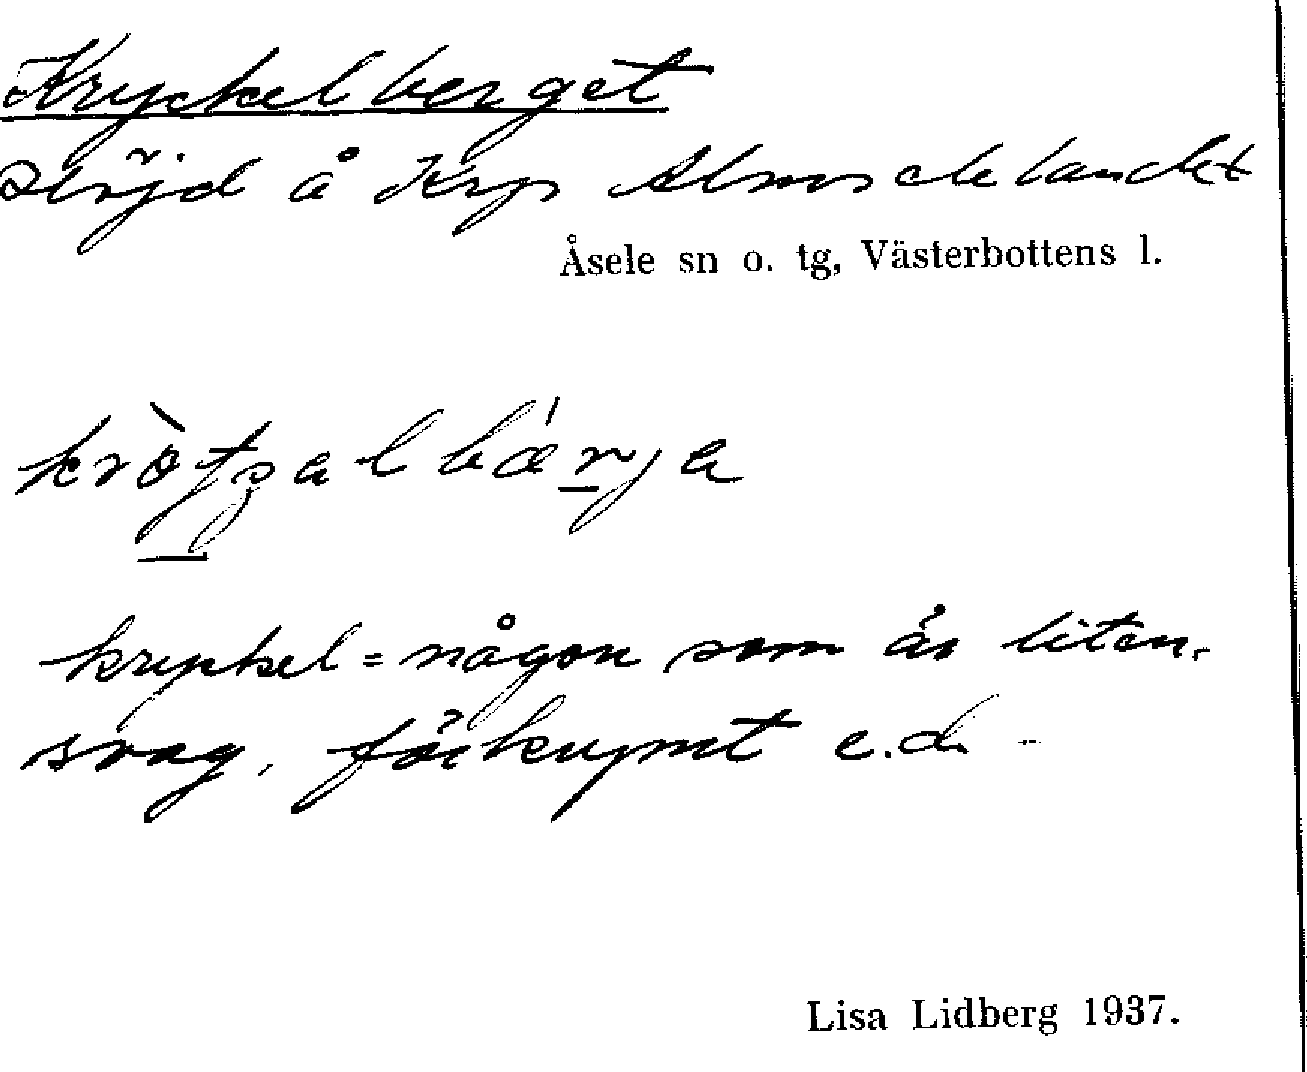 Kryckelberget
Höjd å Krp Almselelandet
Åsele sn o. tg, Västerbottens l.
kryckel = någon som är liten,
svag, förkrympt e.d.
Lisa Lidberg 1937.